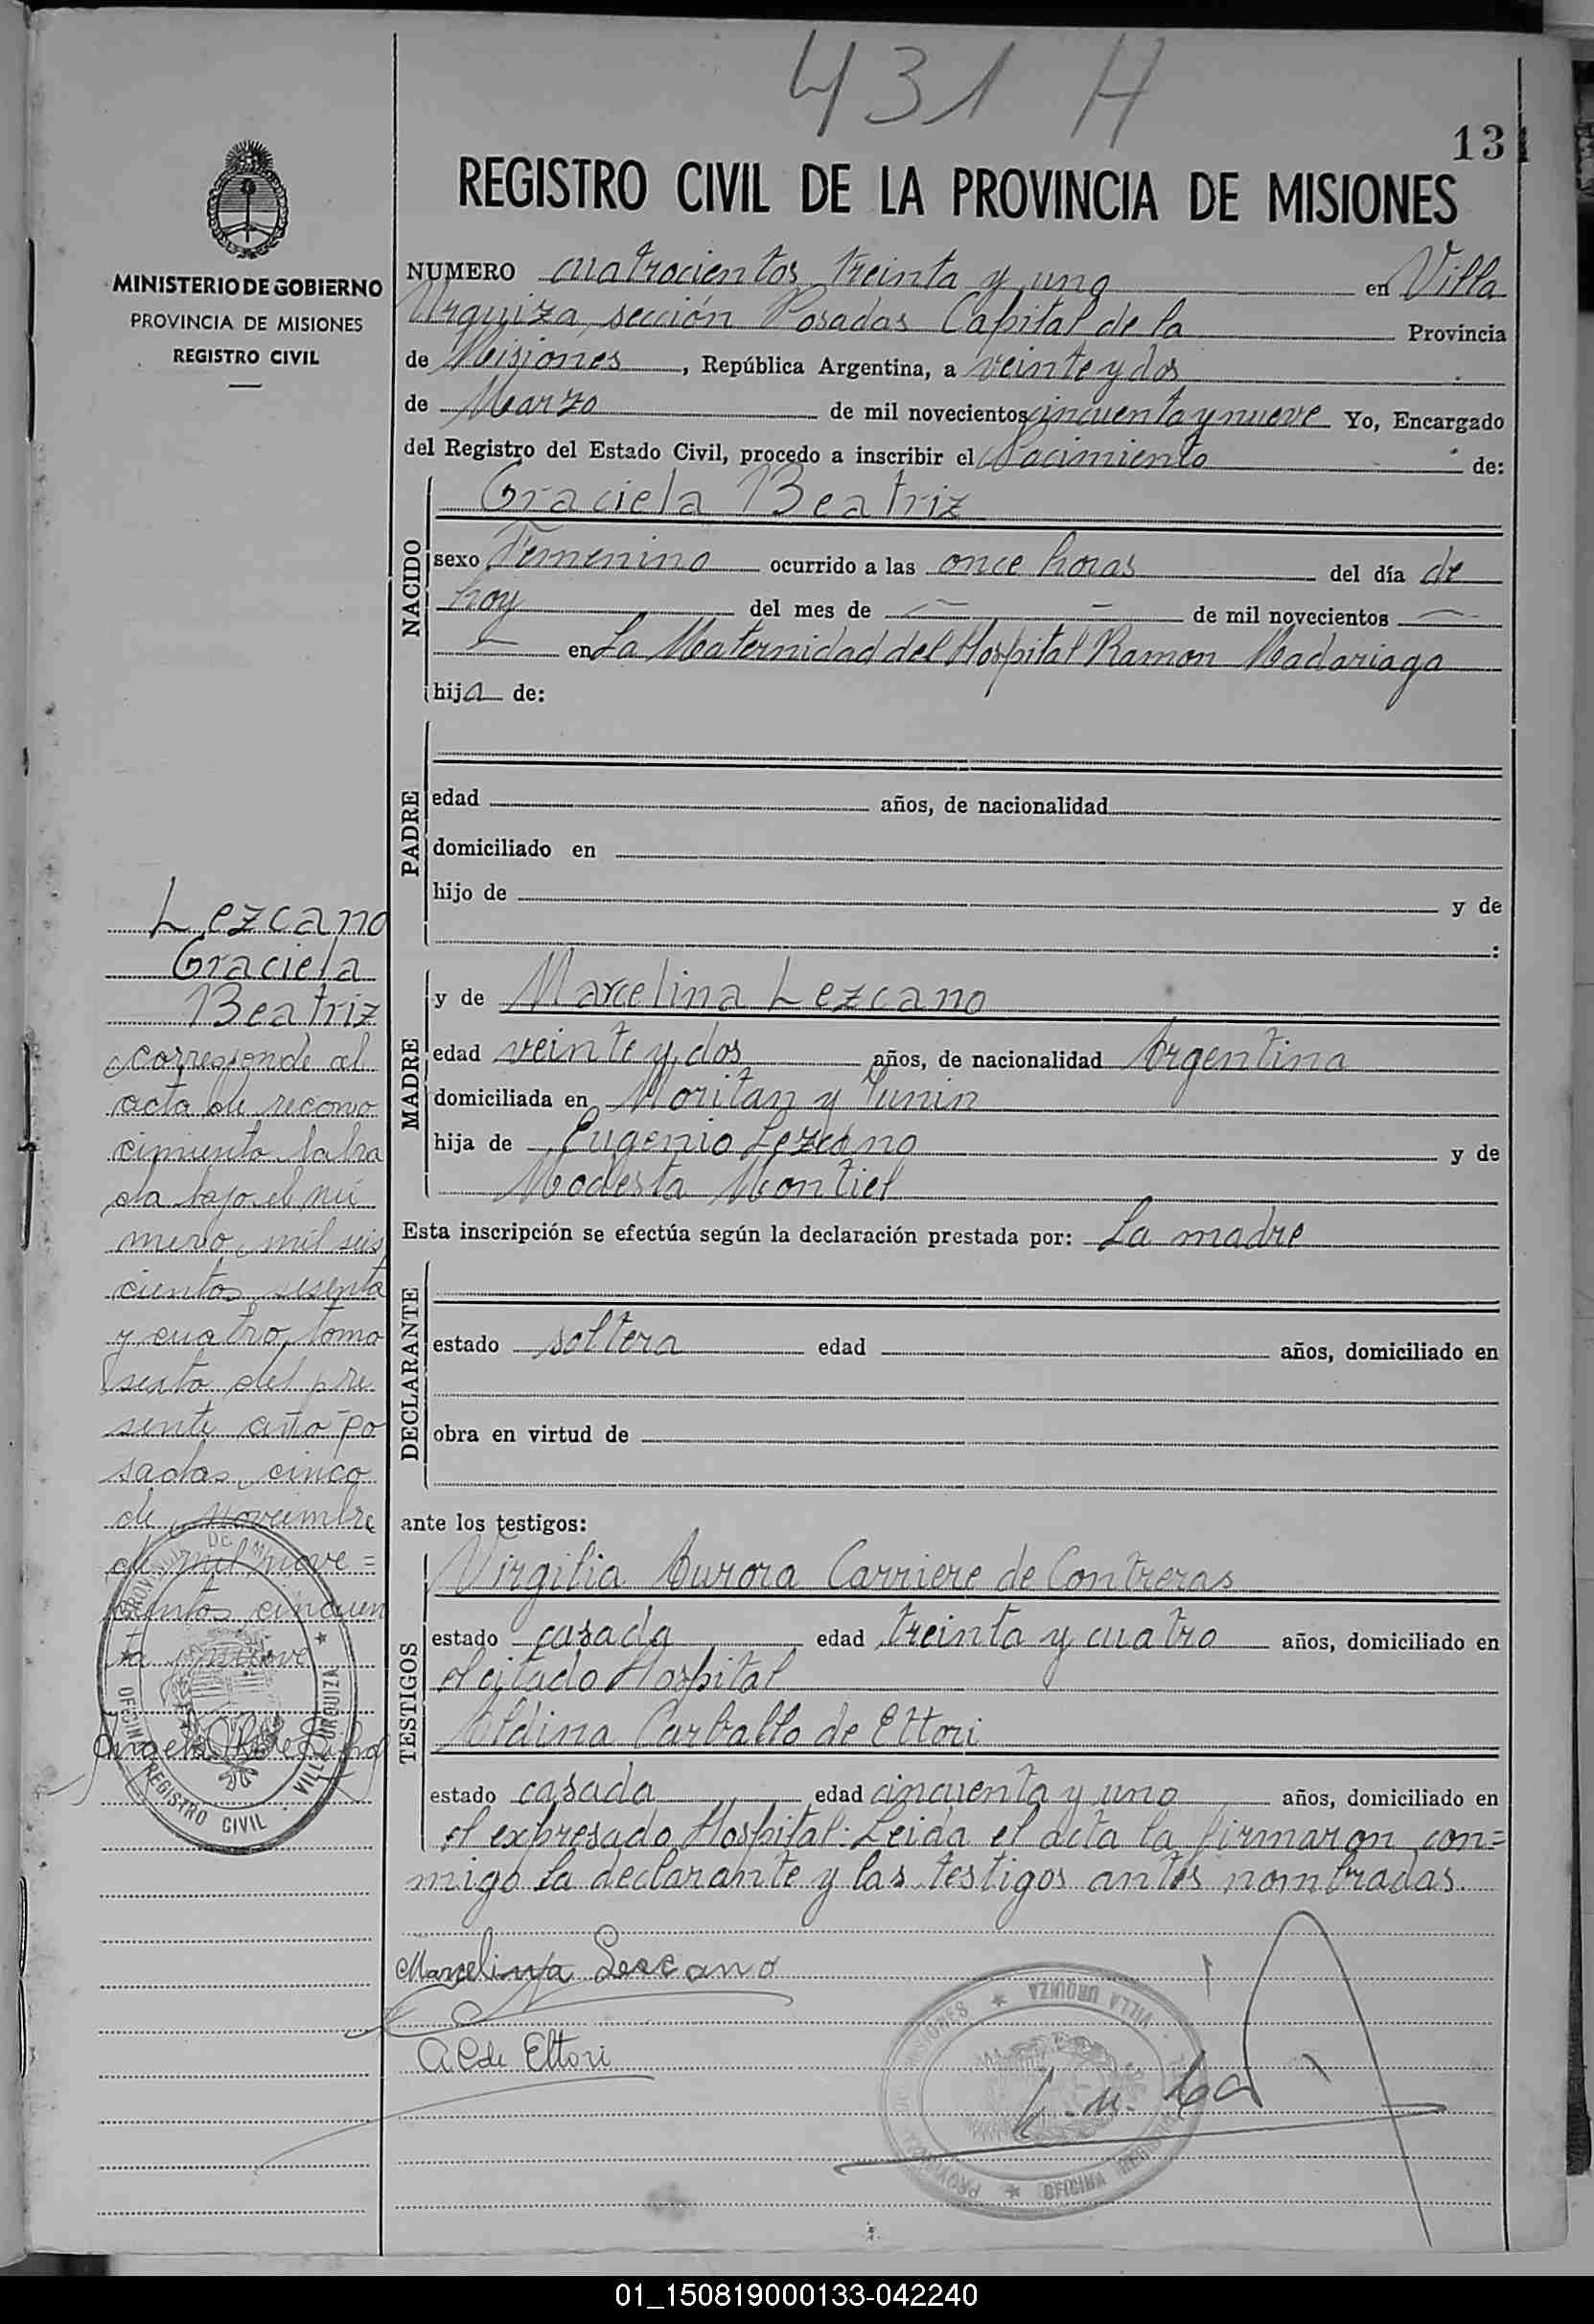 431 H
131
REGISTRO CIVIL DE LA PROVINCIA DE MISIONES
MINISTERIO DE GOBIERNO
PROVINCIA DE MISIONES
REGISTRO CIVIL
NUMERO cuatrocientos treinta y uno en Villa
Urquiza, sección Posadas Capital de la Provincia
de Misiones, República Argentina, a veinte y dos
de Marzo de mil novecientos cincuenta y nueve Yo, Encargado
del Registro del Estado Civil, procedo a inscribir el Nacimiento de:
NACIDO
Graciela Beatriz
sexo Femenino ocurrido a las once horas del día de
hoy del mes de — — de mil novecientos —
— en La Maternidad del Hospital Ramon Madariaga
hija de:
PADRE
edad años, de nacionalidad
domiciliado en
hijo de y de
:
MADRE
y de Marcelina Lezcano
edad veinte y dos años, de nacionalidad Argentina
domiciliada en Moritan y Junin
hija de Eugenio Lezcano y de
Modesta Montiel
Esta inscripción se efectúa según la declaración prestada por: La madre
DECLARANTE
estado soltera edad años, domiciliado en
obra en virtud de
ante los testigos:
TESTIGOS
Virgilia Aurora Carriere de Contreras
estado casada edad treinta y cuatro años, domiciliado en
el citado Hospital
Aldina Carballo de Ettori
estado casada edad cincuenta y uno años, domiciliado en
el expresado Hospital. Leida el acta la firmaron con=
migo la declarante y las testigos antes nombradas.
Marcelina Lescano
A C de Ettori
Lezcano
Graciela
Beatriz
corresponde al
acta de recono
cimiento labra
da bajo el nú
mero mil seis
cientos sesenta
y cuatro, tomo
sexto del pre
sente año-Po
sadas, cinco
de noviembre
de mil nove=
cientos cincuen
ta y nueve
PROVINCIA DE MISIONES
OFICINA REGISTRO CIVIL · VILLA URQUIZA
VILLA URQUIZA
OFICINA
01_150819000133-042240